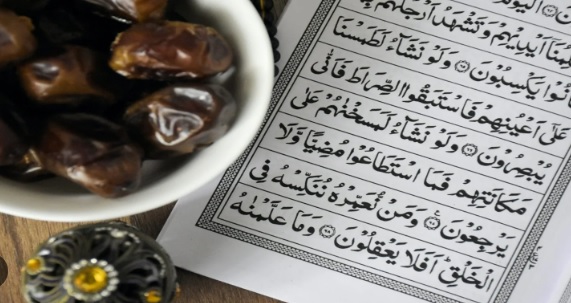 اَيْدِيْهِمْ وَتَشْهَدُ اَرْجُلُهُمْ
كَانُوْا يَكْسِبُوْنَ ۝ وَلَوْ نَشَآءُ لَطَمَسْنَا
عَلٰٓى اَعْيُنِهِمْ فَاسْتَبَقُوا الصِّرَاطَ فَاَنّٰى
يُبْصِرُوْنَ ۝ وَلَوْ نَشَآءُ لَمَسَخْنٰهُمْ عَلٰى
مَكَانَتِهِمْ فَمَا اسْتَطَاعُوْا مُضِيًّا وَّلَا
يَرْجِعُوْنَ ۝ وَمَنْ نُّعَمِّرْهُ نُنَكِّسْهُ فِى
الْخَلْقِ ؕ اَفَلَا يَعْقِلُوْنَ ۝ وَمَا عَلَّمْنٰهُ